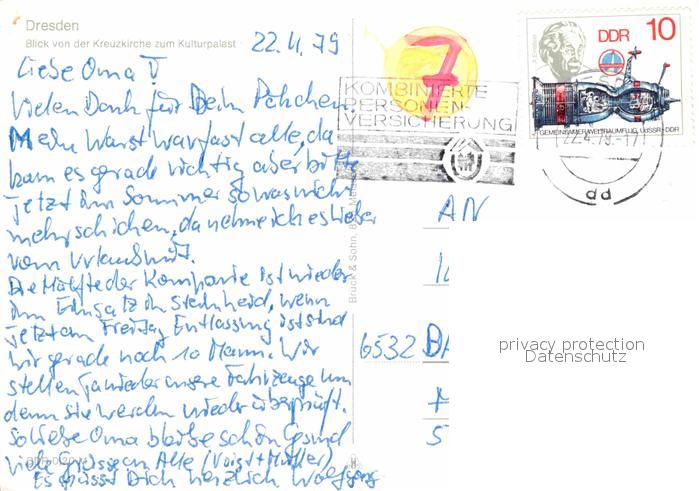 Dresden
Blick von der Kreuzkirche zum Kulturpalast
22.4.79
Liebe Oma!
Vielen Dank für Dein Päkchen.
Meine Warst war fast alle, da
kam es gerade richtig aber bitte
jetzt im Sommer sowas nicht
mehr schicken, da nehme ich es lieber
vom Urlaub mit.
Die Hälfte der Kompanie ist wieder
im Einsatz in Steinheid, wenn
jetzt am Freitag Entlassung ist sind
wir gerade noch 10 Mann. Wir
stellen ja wieder unsere Fahrzeuge um
denn sie werden wieder überprüft.
So liebe Oma bleibe schön Gesund
viele Grüsse an Alle (Voigt + Müller)
Es grüsst Dich herzlich Wolfgang
7
KOMBINIERTE
PERSONEN-
VERSICHERUNG
DDR 10
GEMEINSAMER WELTRAUMFLUG UdSSR-DDR
22.4.79.-17
dd
Bruck & Sohn,
AN
6532 BA
privacy protection
Datenschutz